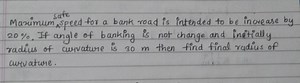 Maximum safe speed for a bank road is intended to be increase by
20%. If angle of banking is not change and initially
radius of curvature is 30 m then find final radius of
curvature.